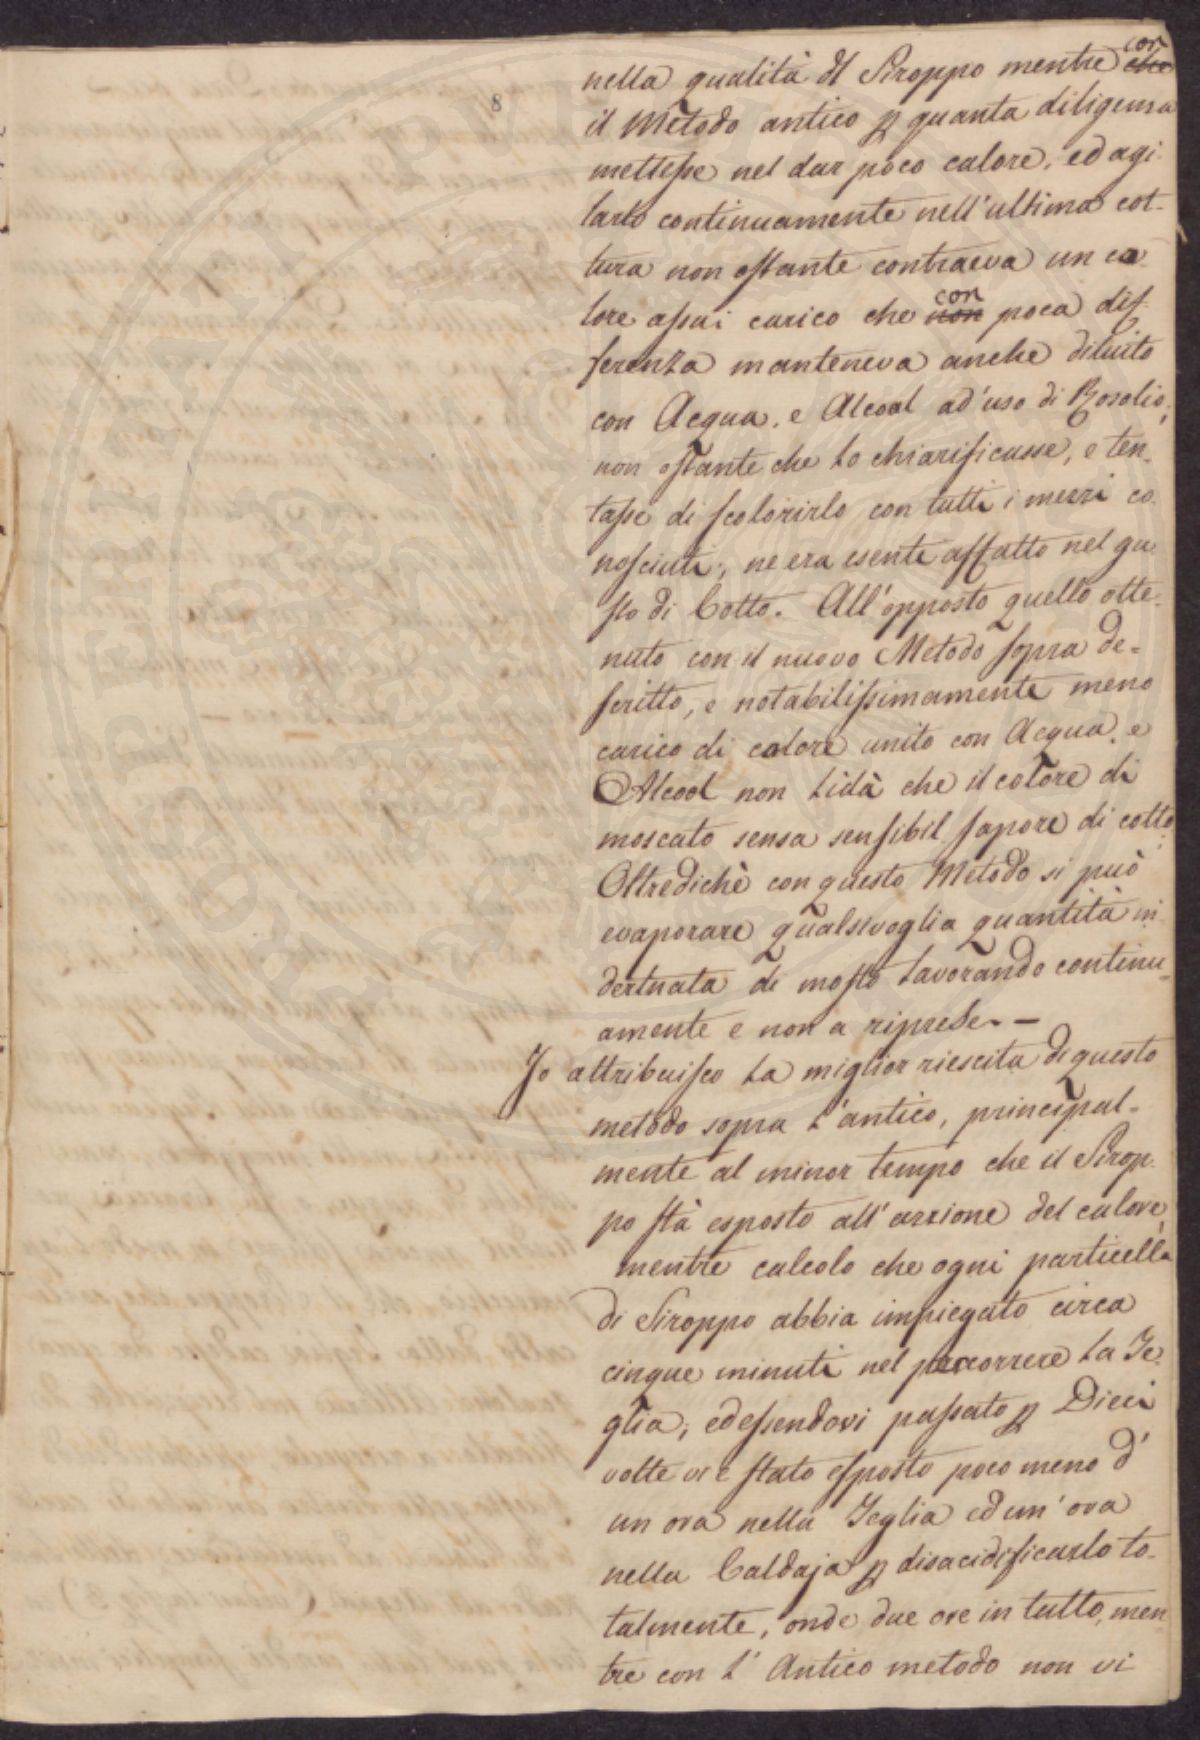 8
nella qualità dl Siroppo mentre ~~che~~ con
il Metodo antico p quanta diligenza
mettesse nel dar poco calore, ed agi-
tarlo continuamente nell'ultima cot-
tura non ostante contraeva un co-
lore assai carico che ~~non~~ con poca dif-
ferenza manteneva anche diluito
con Acqua, e Alcool ad'uso di Rosolio,
non ostante che lo chiarificasse, e ten-
tasse di scolorirlo con tutti i mezzi co-
nosciuti, ne era esente affatto nel gu-
sto di Cotto. All'opposto quello otte-
nuto con il nuovo Metodo sopra de-
scritto, e notabilissimamente meno
carico di colore unito con Acqua, e
Alcool non li dà che il colore di
moscato sensa sensibil sapore di cotto.
Oltredichè con questo Metodo si può
evaporare qualsivoglia quantità in
dertnata di mosto lavorando continu-
amente e non a riprese. —
Jo attribuisco la miglior riescita di questo
metodo sopra l'antico, principal-
mente al minor tempo che il Sirop-
po stà esposto all'azzione del calore,
mentre calcolo che ogni particella
di Siroppo abbia impiegato circa
cinque minuti nel percorrere la Te-
glia, ed essendovi passato p Dieci
volte vi è stato esposto poco meno d'
un ora nella Teglia ed un'ora
nella Caldaja p disacidificarlo to-
talmente, onde due ore in tutto, men
tre con l'Antico metodo non vi